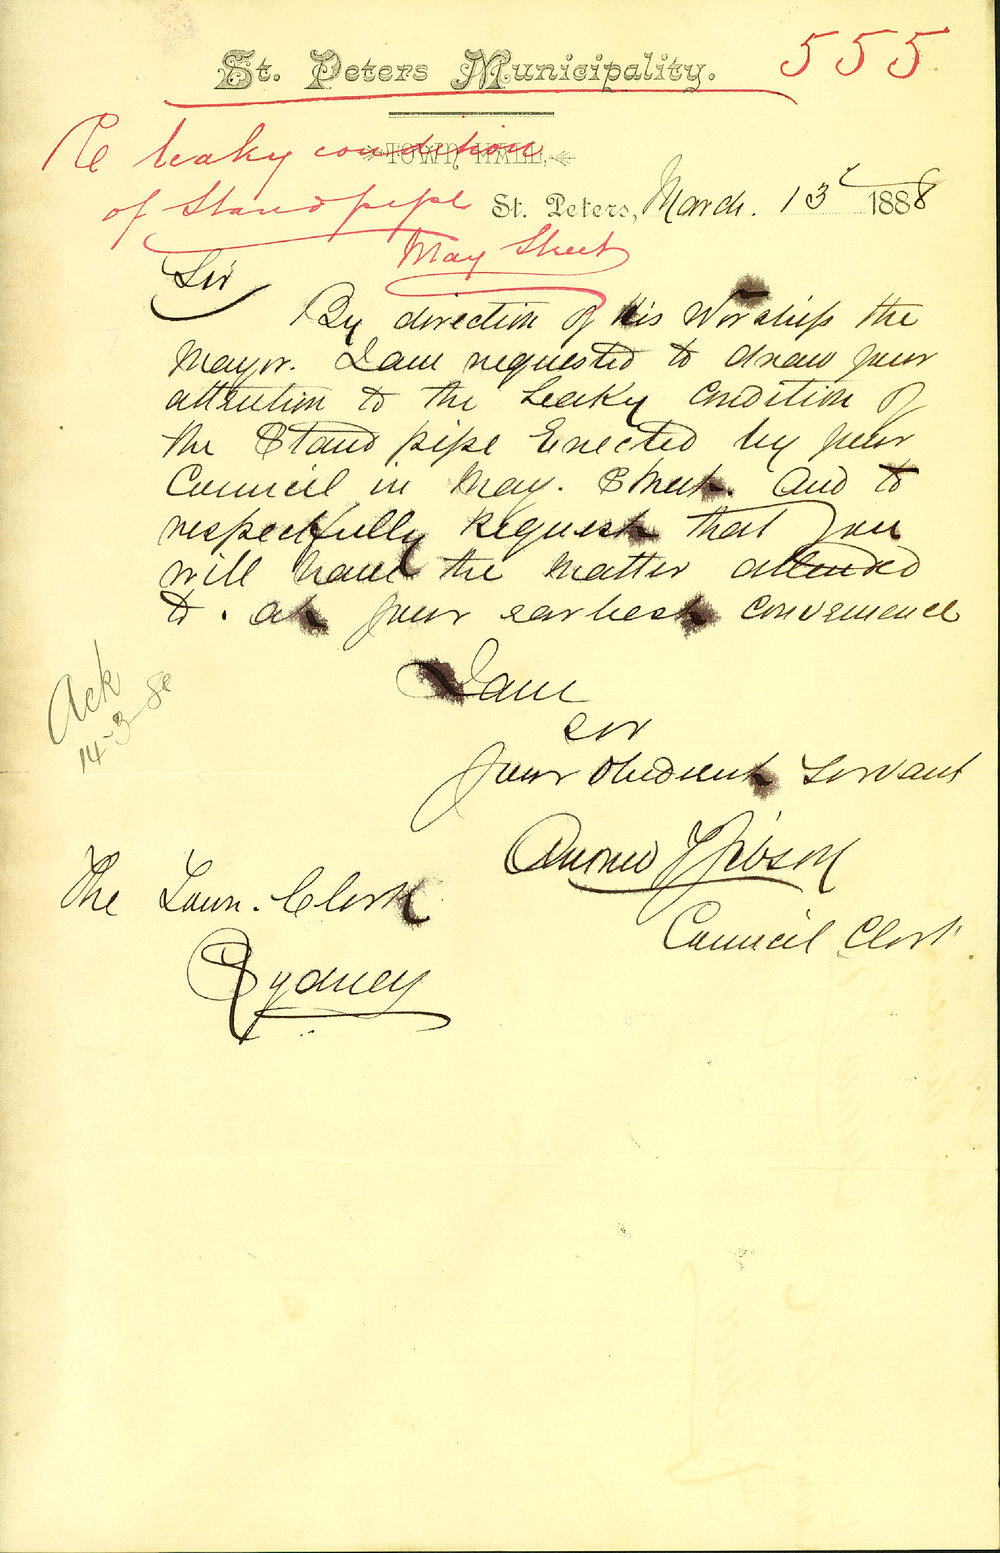 St. Peters Municipality.
555
TOWN HALL,
Re leaky condition
of Stand pipe
May Street
St. Peters, March. 13 1888
Sir
By direction of His Worship the
Mayor. I am requested to draw your
attention to the Leaky Condition of
the Stand pipe Erected by your
Council in May. Street. And to
respectfully Request that you
will have the Matter attended
to. at your earliest Convenience
I am
Sir
Your Obedient Servant
Gibson
Council Clerk
Ack
14-3-88
The Town. Clerk
Sydney